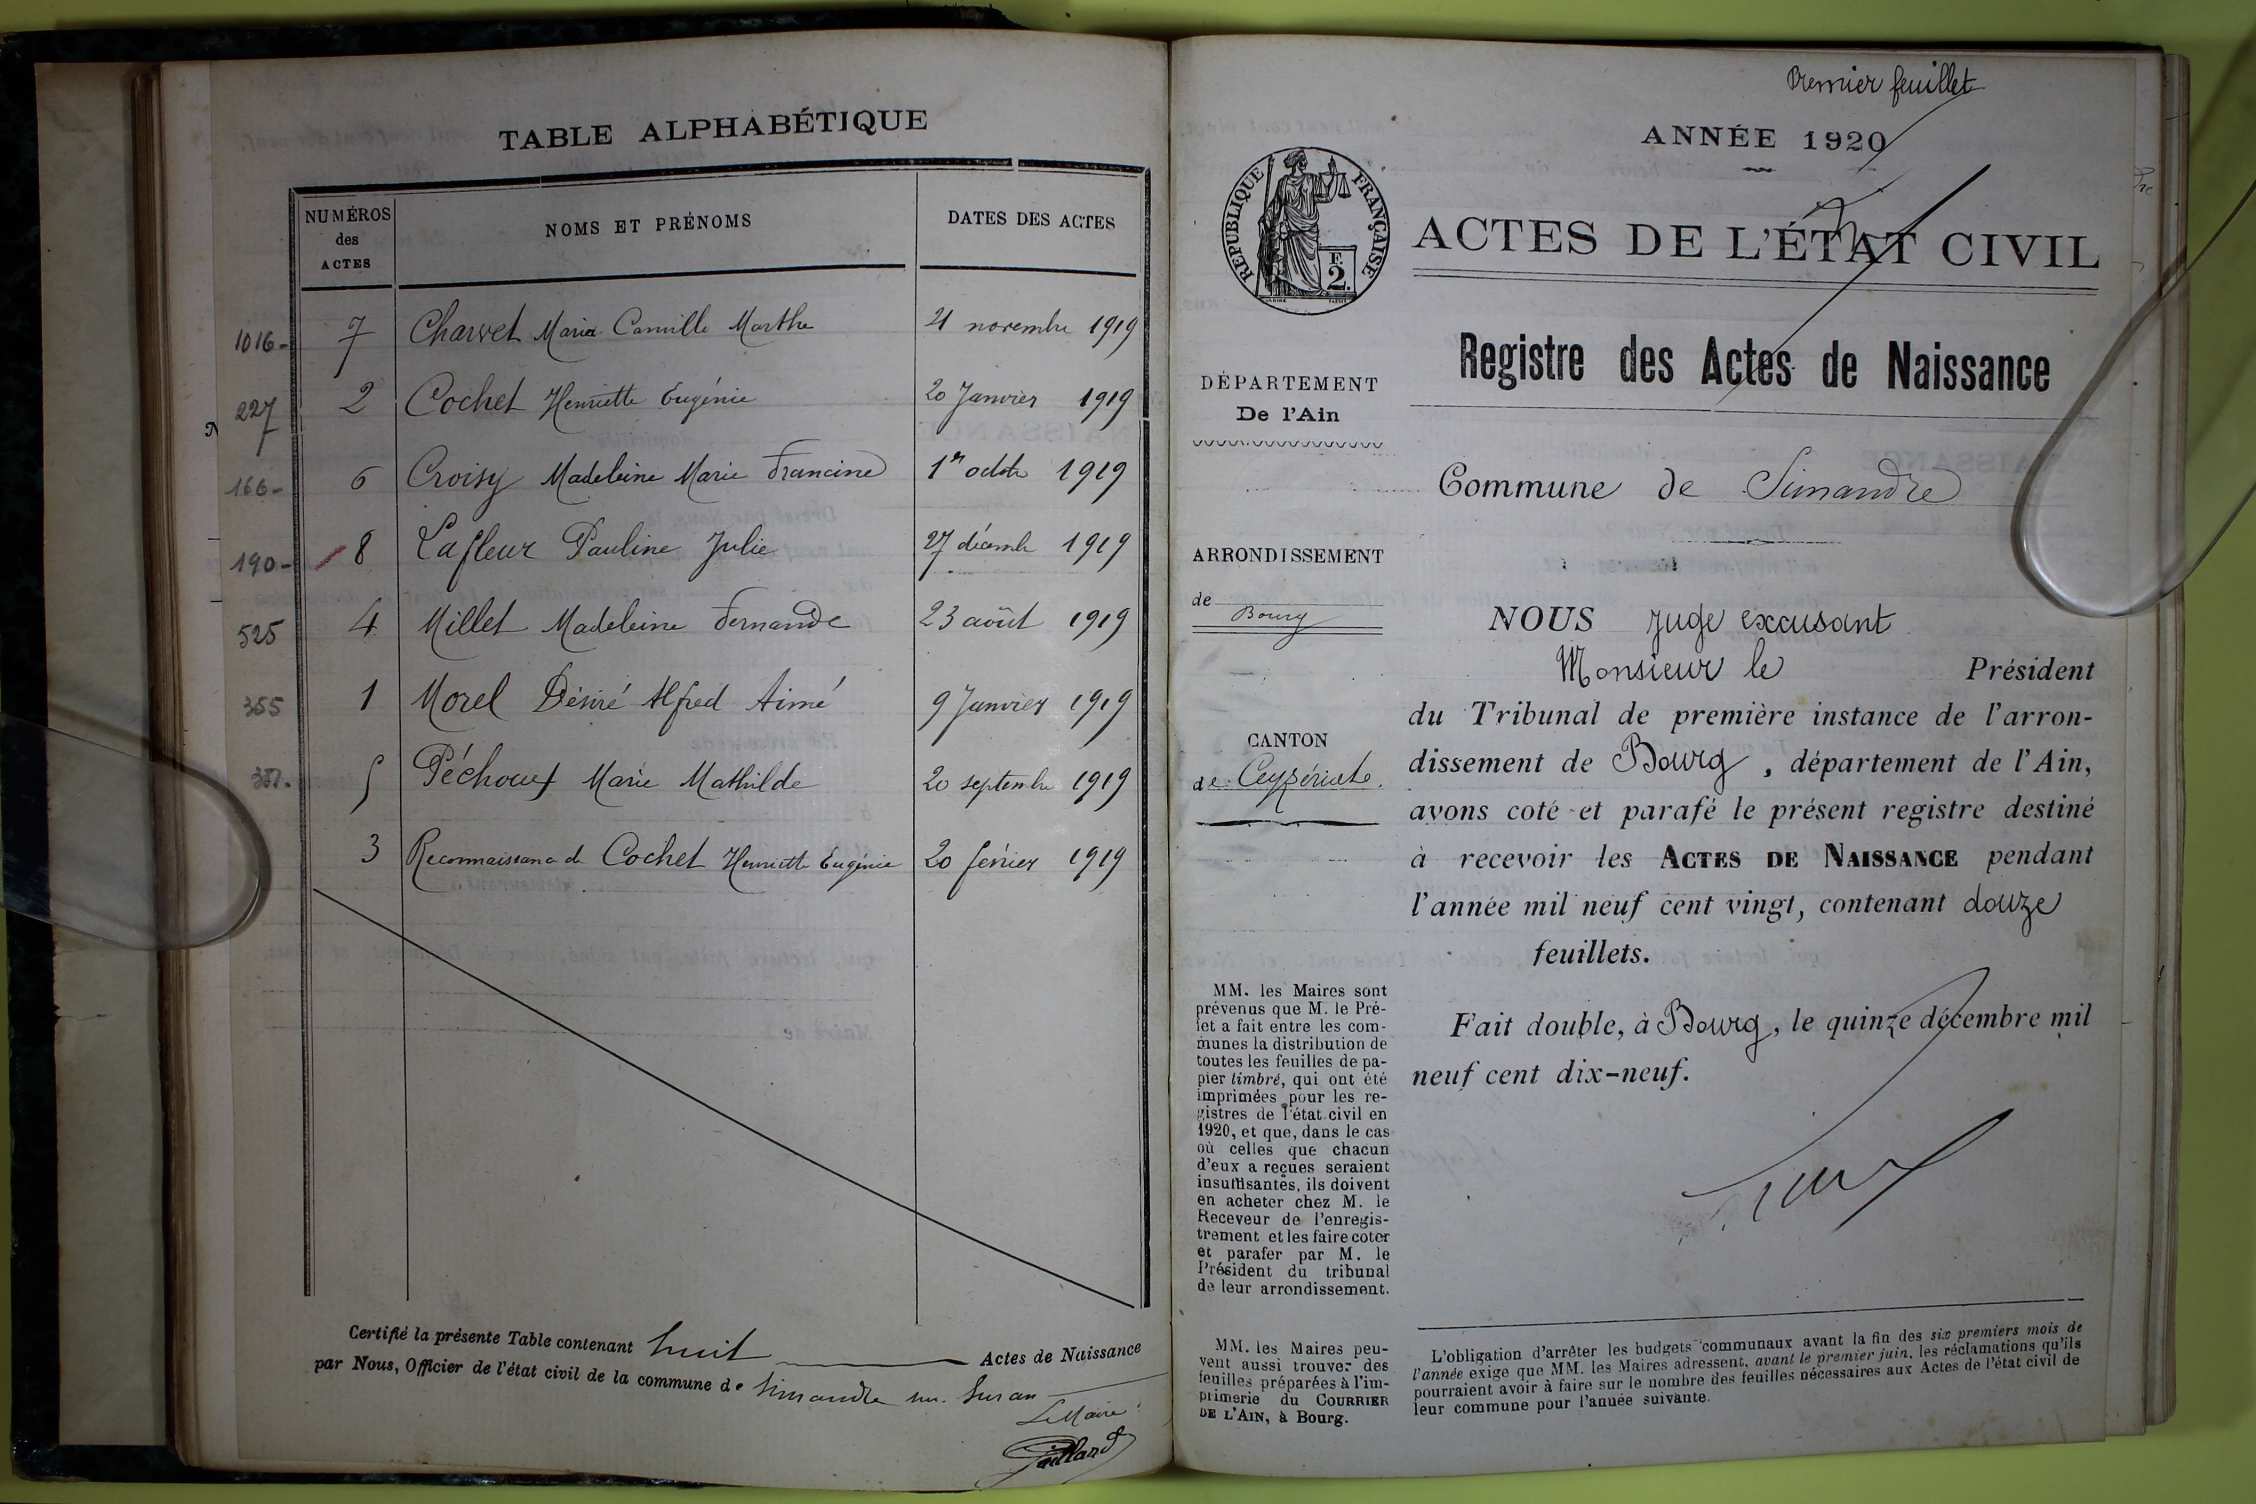 TABLE ALPHABÉTIQUE
NUMÉROS
des
ACTES
NOMS ET PRÉNOMS
DATES DES ACTES
1016 - 7 Charvet Maria Camille Marthe 21 novembre 1919
227 2 Cochet Henriette Eugénie 20 Janvier 1919
166 - 6 Croisy Madeleine Marie Francine 1er octobre 1919
190 - 8 Lafleur Pauline Julie 27 décembre 1919
525 4 Millet Madeleine Fernande 23 août 1919
355 1 Morel Désiré Alfred Aimé 9 Janvier 1919
5 Péchoux Marie Mathilde 20 septembre 1919
3 Reconnaissance de Cochet Henriette Eugénie 20 février 1919
Certifié la présente Table contenant huit Actes de Naissance
par Nous, Officier de l'état civil de la commune de Simandre sur Suran
Le Maire
Premier feuillet
ANNÉE 1920
RÉPUBLIQUE FRANÇAISE
F.
2.
ACTES DE L'ÉTAT CIVIL
Registre des Actes de Naissance
DÉPARTEMENT
De l'Ain
Commune de Simandre
ARRONDISSEMENT
de Bourg
CANTON
de Ceyzériat
NOUS juge excusant
Monsieur le Président
du Tribunal de première instance de l'arron-
dissement de Bourg, département de l'Ain,
avons coté et parafé le présent registre destiné
à recevoir les ACTES DE NAISSANCE pendant
l'année mil neuf cent vingt, contenant douze
feuillets.
Fait double, à Bourg, le quinze décembre mil
neuf cent dix-neuf.
MM. les Maires sont
prévenus que M. le Pré-
fet a fait entre les com-
munes la distribution de
toutes les feuilles de pa-
pier timbré, qui ont été
imprimées pour les re-
gistres de l'état civil en
1920, et que, dans le cas
où celles que chacun
d'eux a reçues seraient
insuffisantes, ils doivent
en acheter chez M. le
Receveur de l'enregis-
trement et les faire coter
et parafer par M. le
Président du tribunal
de leur arrondissement.
MM. les Maires peu-
vent aussi trouver des
feuilles préparées à l'im-
primerie du COURRIER
DE L'AIN, à Bourg.
L'obligation d'arrêter les budgets communaux avant la fin des six premiers mois de
l'année exige que MM. les Maires adressent, avant le premier juin, les réclamations qu'ils
pourraient avoir à faire sur le nombre des feuilles nécessaires aux Actes de l'état civil de
leur commune pour l'année suivante.